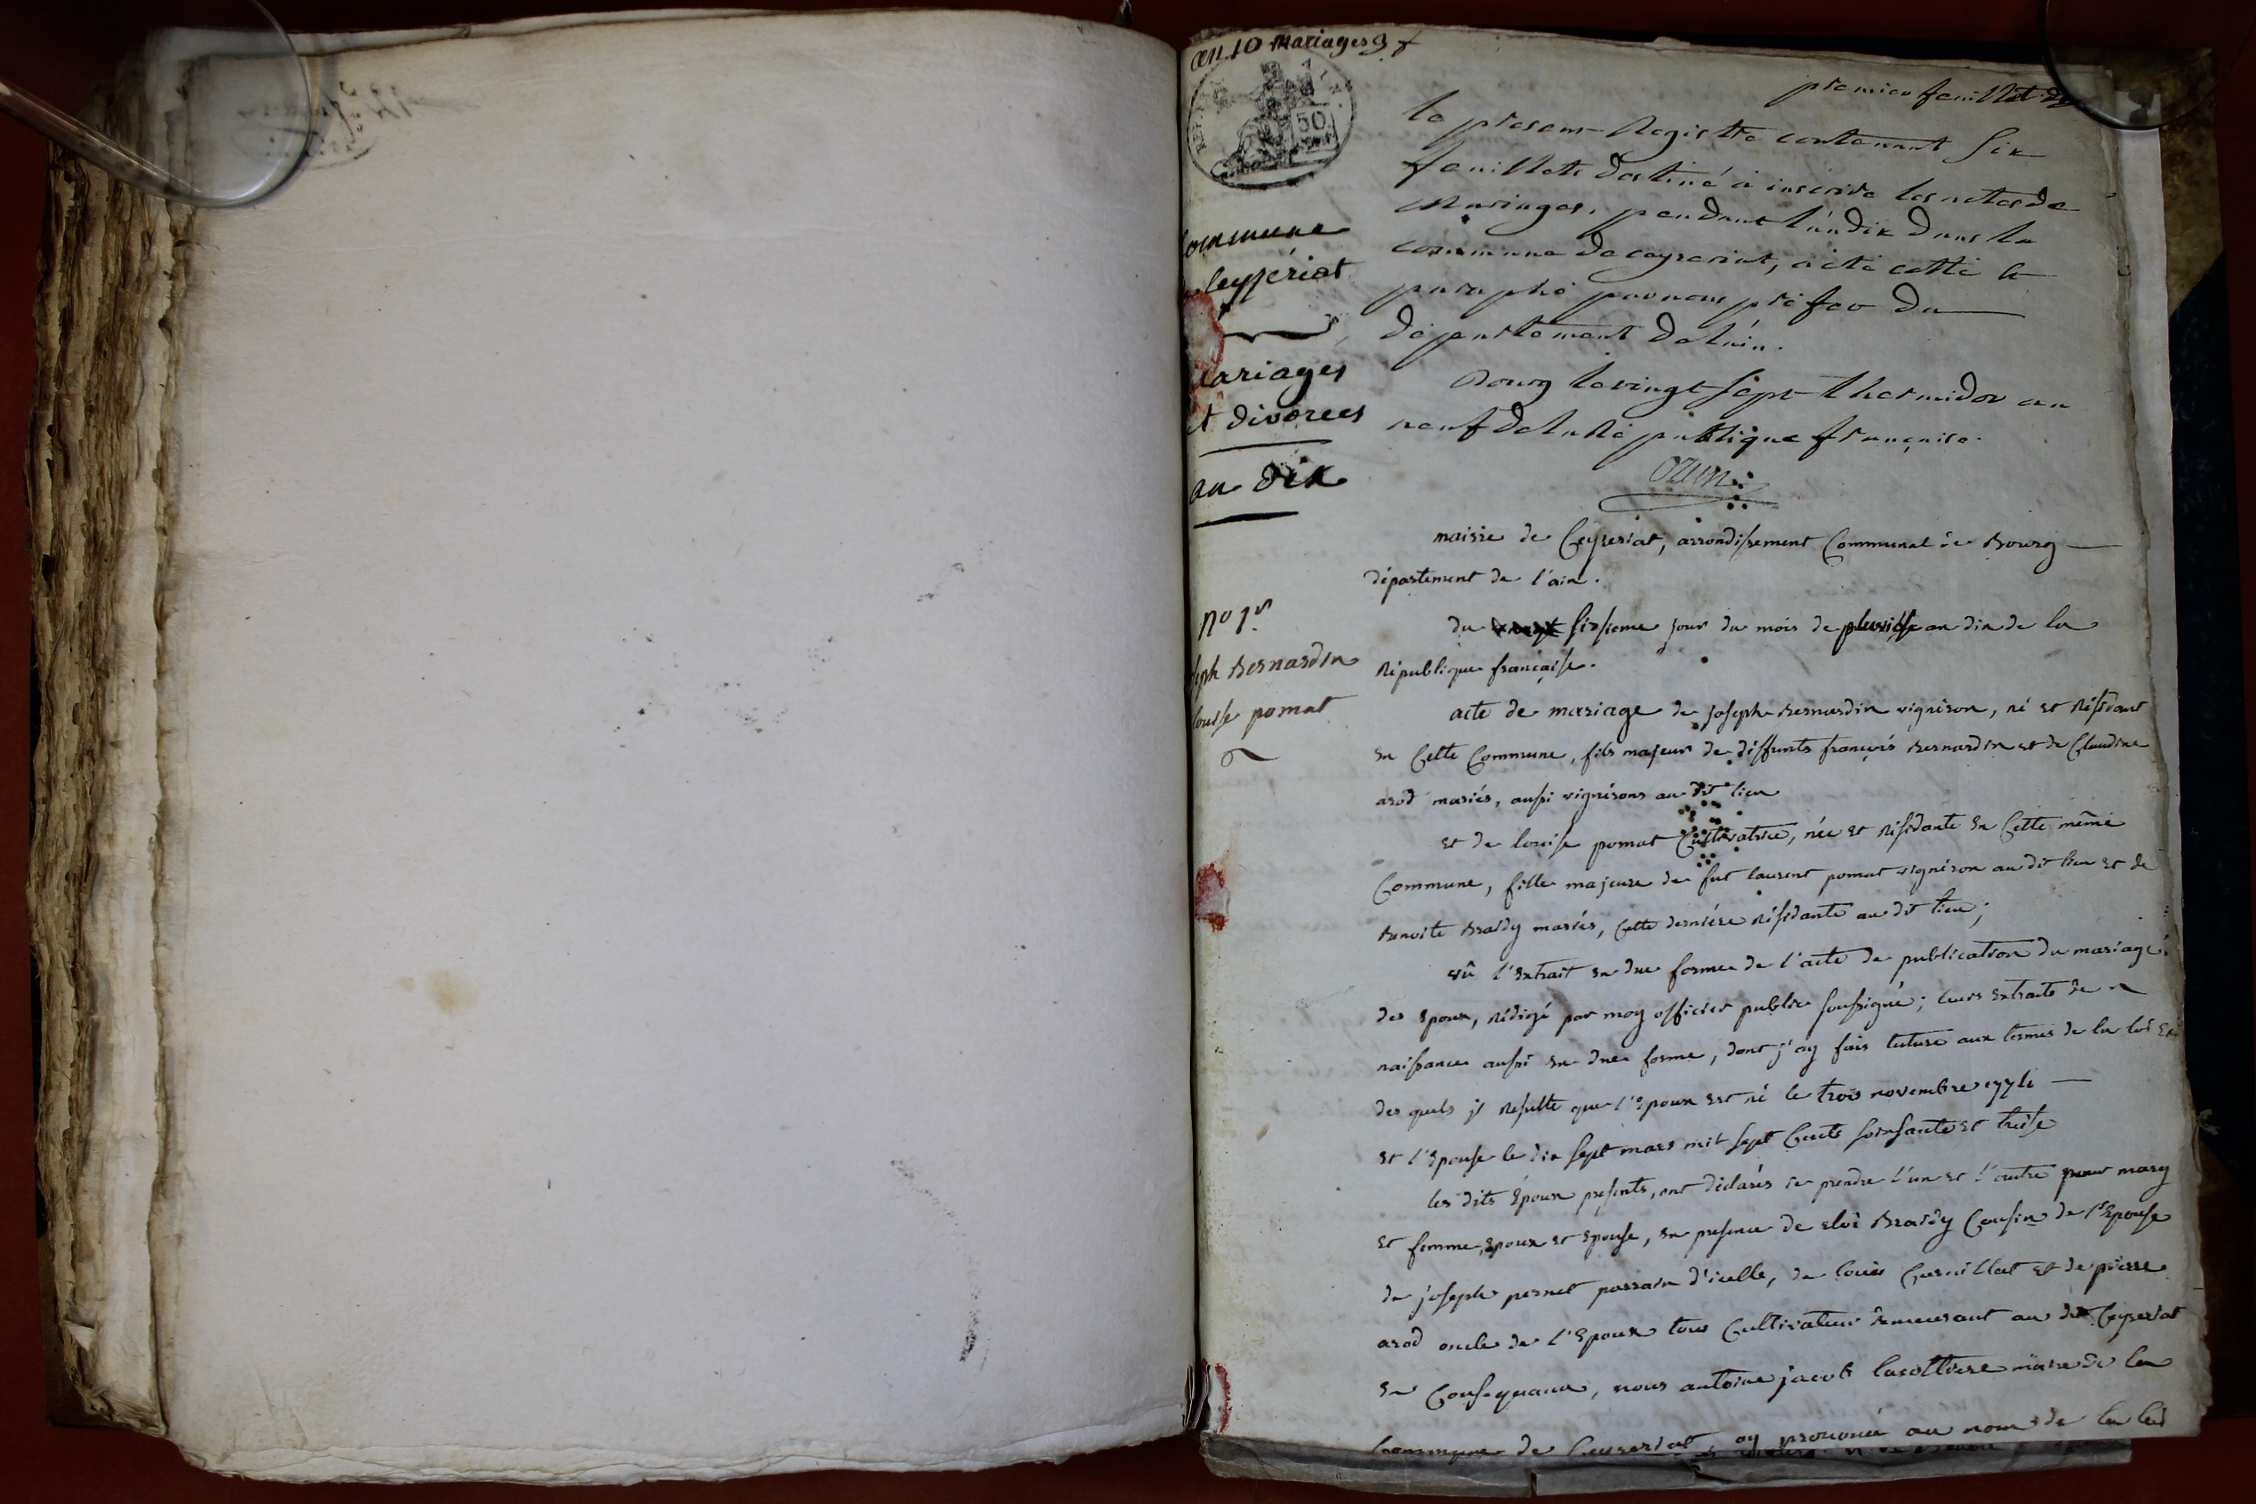 an 10 mariages 9
premier feuillet
50
le présent Registre contenant Six
feuillets destiné à inscrire les actes de
Mariages, pendant l'an dix dans la
commune de ceyzeriat, a été cotté &
paraphé par nous préfet du
département de l'ain.
Bourg le vingt sept thermidor an
neuf de la République française.
Ozun
commune
Ceyseriat
mariages
et divorces
an dix
mairie de Ceyseriat, arrondissement Communal de Bourg
département de l'ain.
du sixsieme jour du mois de pluviose an dix de la
République française.
no 1er
Joseph Bernardin
louise pomat
acte de mariage de joseph Bernardin vigneron, né et Résidant
en Cette Commune, fils majeur de deffunts françois Bernardin et de Claudine
arod mariés, aussi vignerons au dit lieu
et de louise pomat Cultivatrice, née et résidante en Cette même
Commune, fille majeure de fut laurent pomat vigneron au dit lieu et de
Benoite Brardy mariés, Cette derniére Résidante au dit lieu;
vû l'extrait en due forme de l'acte de publication du mariage
des epoux, rédigé par moy officier public soussigné; leurs extraits de
naissance aussi en due forme, dont j'ay fais lecture aux termes de la loi et
des quels il resulte que l'epoux est né le trois novembre
et l'Epouse le dix sept mars mil sept Cents soixsante et treise
les dits Epoux presents, ont déclarés se prendre l'un et l'autre pour mary
et femme, epoux et epouse, en presence de eloi Brardy Cousin de l'Epouse
de joseph pernet parrain d'icelle, de louis Curnillat et de pierre
arod oncle de l'Epoux tous Cultivateur demeurant au dit Ceyseriat
en Consequance, nous antoine jacob lacottiere maire de la
Commune de Ceyseriat ay prononcé au nom de la loi